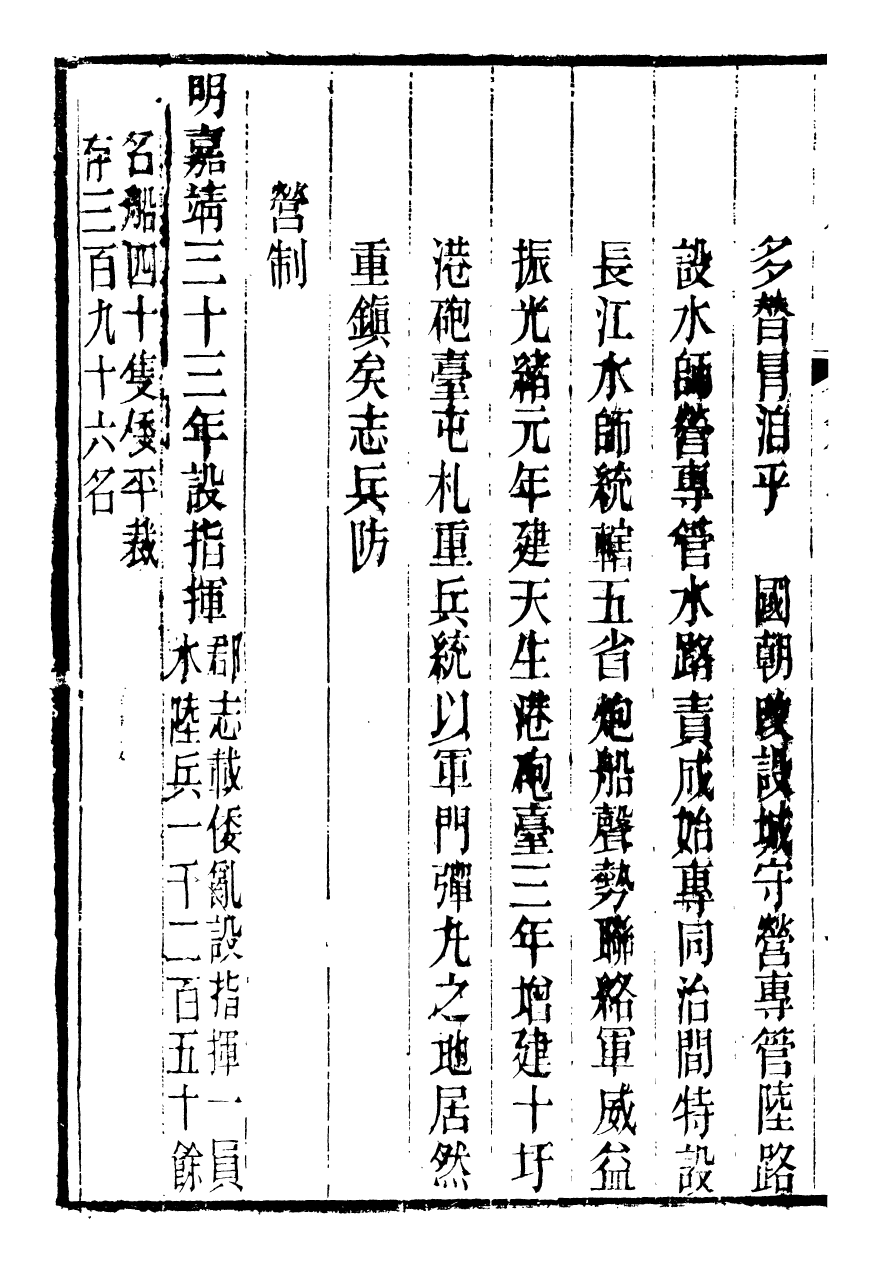 多嘗冐泊乎　國朝改設城守營專管陸路
設水師營專管水路責成始專同治間特設
長江水師統轄五省炮船聲勢聯絡軍威益
振光緒元年建天生港砲臺三年增建十圩
港砲臺屯札重兵統以軍門彈丸之地居然
重鎮矣志兵防
營制
明嘉靖三十三年設指揮
郡志載倭亂設指揮一員
水陸兵一千二百五十餘
名船四十隻倭平裁
存三百九十六名